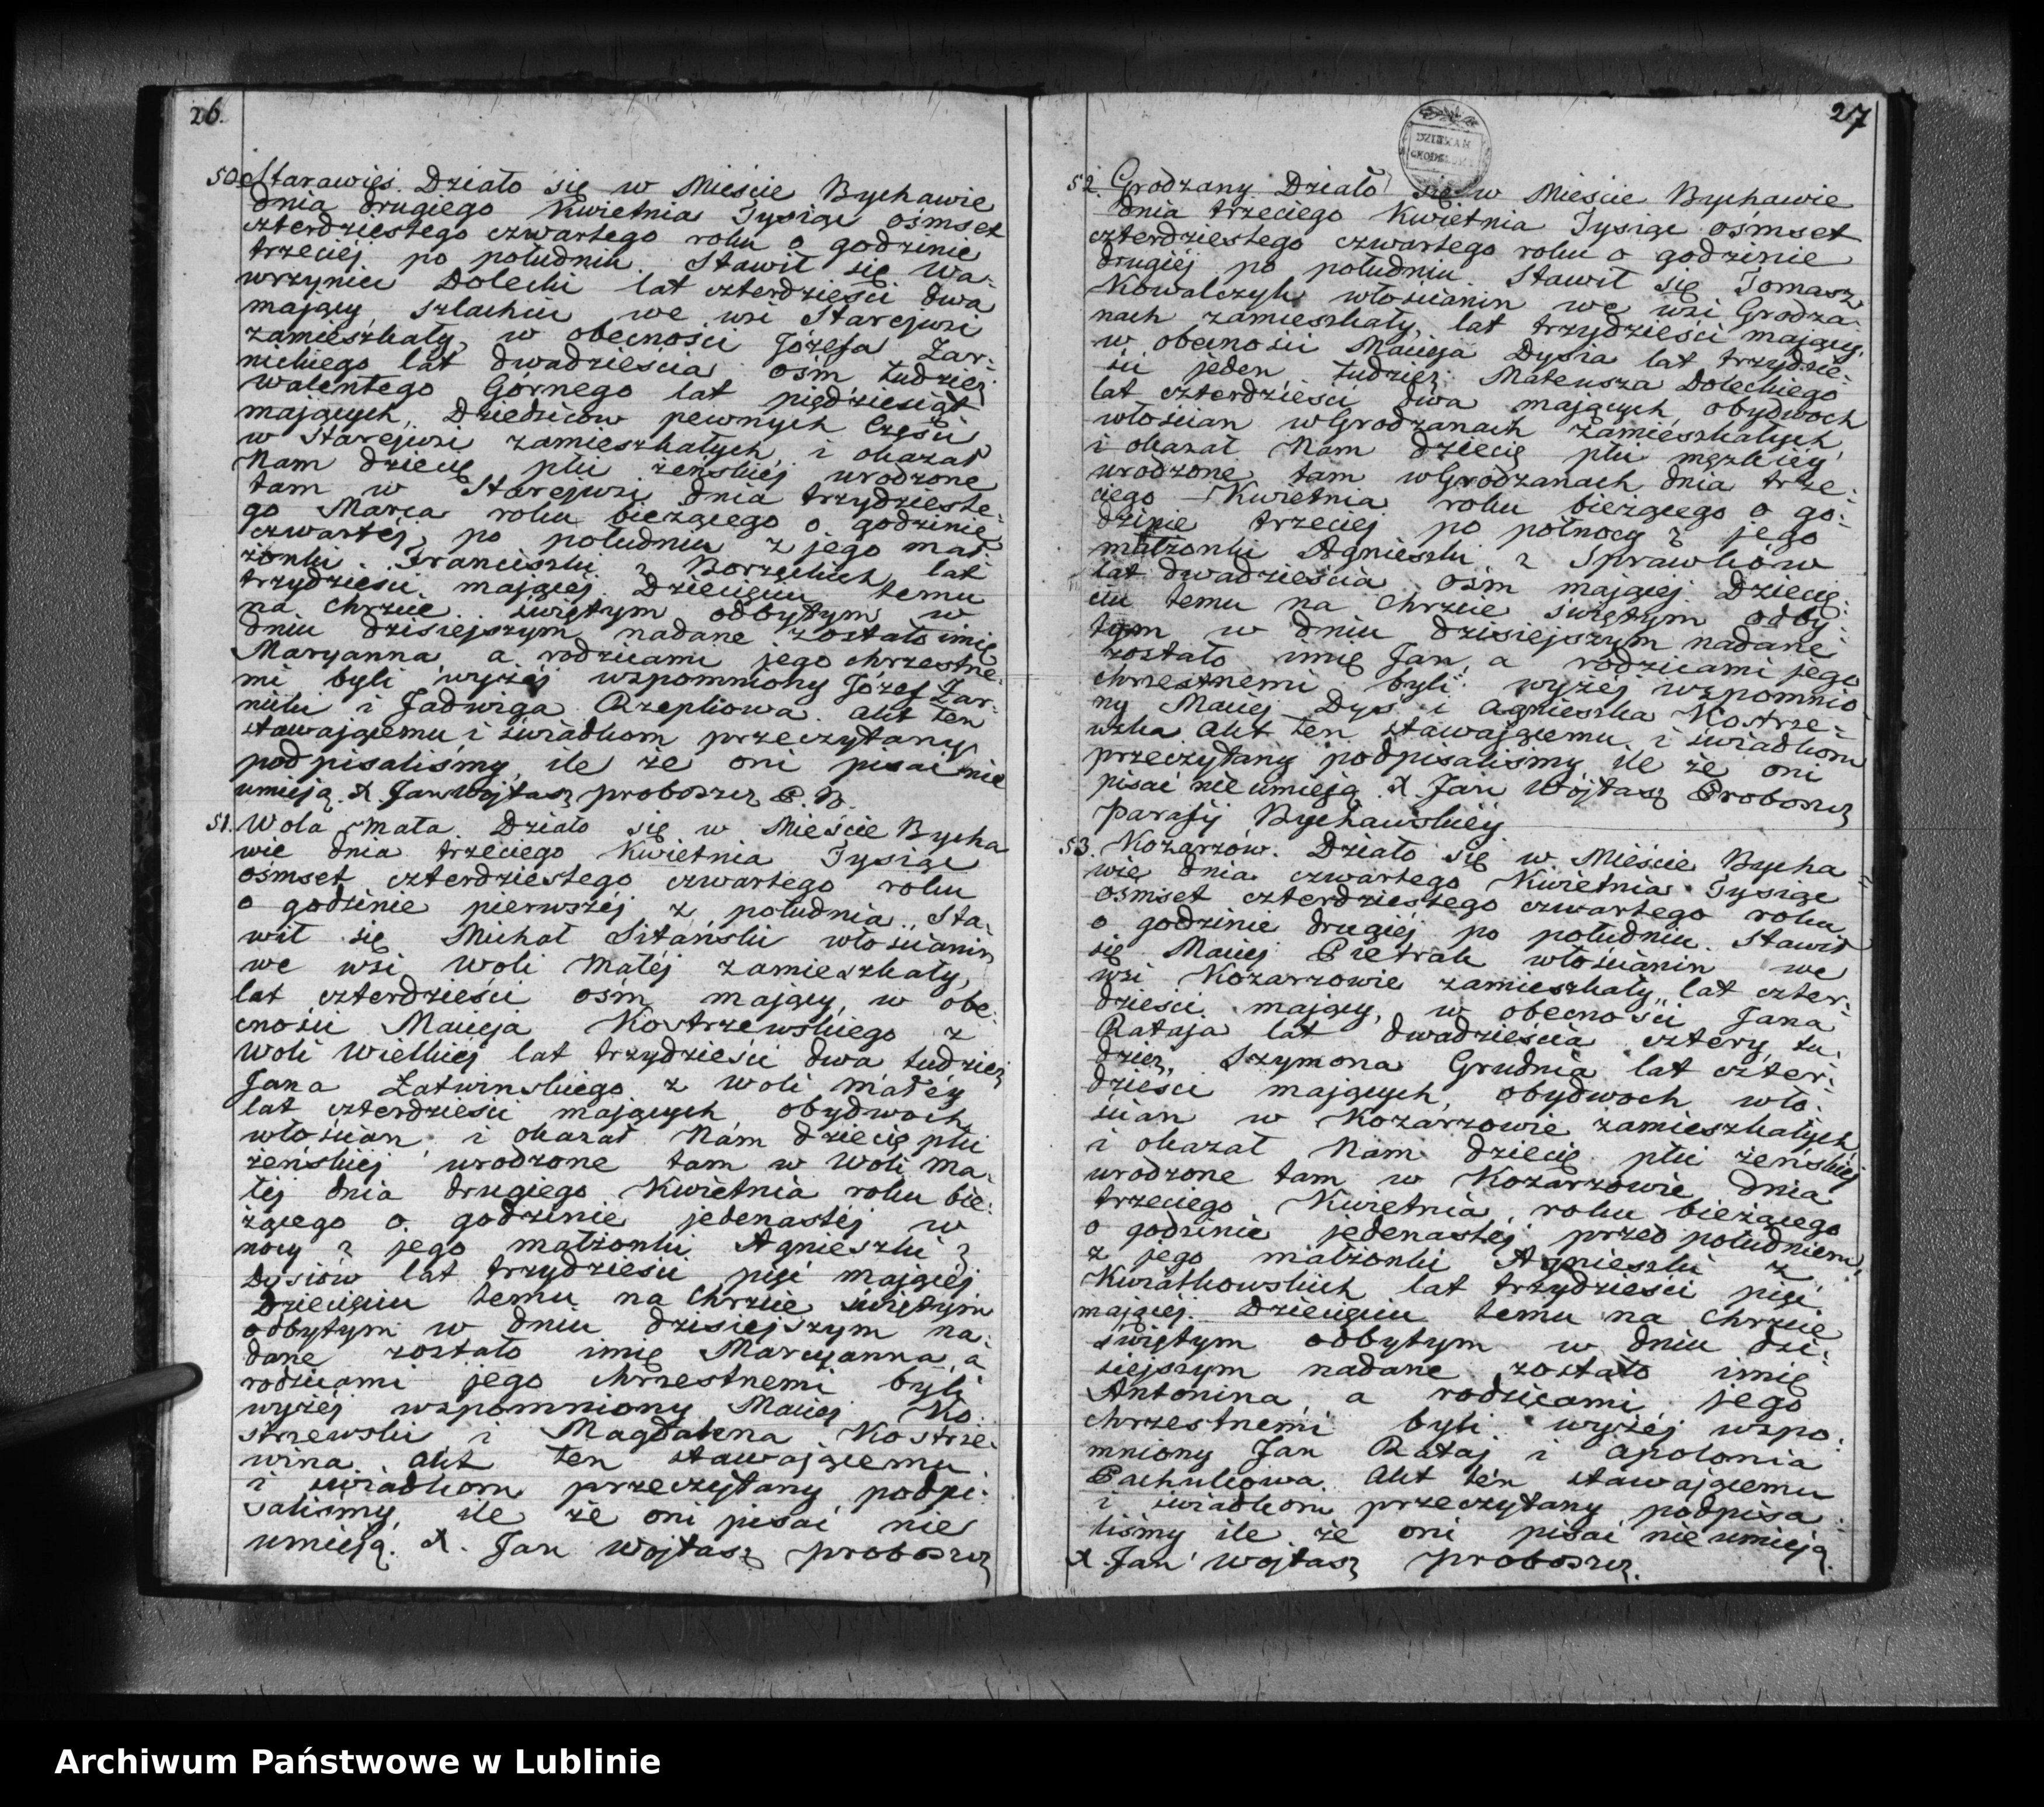 26.
50. Starawieś. Działo się w Mieście Bychawie
dnia drugiego Kwietnia Tysiąc ośmset
czterdziestego czwartego roku o godzinie
trzeciéj po południu. Stawił się Wa-
wrzyniec Dolecki lat czterdzieści dwa
mający, szlachcic we wsi Starejwsi
zamieszkały, w obecności Józefa Żar-
nickiego lat dwadzieścia ośm, tudzież
Walentego Gornego lat pięćdziesiąt
mających, Dziedziców pewnych Części
w Starejwsi zamieszkałych, i okazał
Nam dziecię płci żeńskiéj urodzone
tam w Starejwsi dnia trzydzieste-
go Marca roku bieżącego o godzinie
czwartéj po południu z jego mał-
żonki Franciszki z Borzęckich lat
trzydzieści mającéj. Dziecięciu temu
na Chrzcie świętym odbytym w
dniu dzisiejszym nadane zostało imię
Maryanna, a rodzicami jego chrzestne-
mi byli wyżéj wspomniony Józef Żar-
nicki i Jadwiga Rzepkowa. Akt ten
stawającemu i świadkom przeczytany
podpisaliśmy, ile że oni pisać nie
umieją. X. Jan Wójtasz proboszcz P. B.
51. Wola Mała. Działo się w Mieście Bycha
wie dnia trzeciego Kwietnia Tysiąc
ośmset czterdziestego czwartego roku
o godzinie pierwszéj z południa. Sta-
wił się Michał Sitański włościanin
we wsi Woli Małéj zamieszkały,
lat czterdzieści ośm mający, w obe-
cności Macieja Kostrzewskiego z
Woli Wielkiéj lat trzydzieści dwa tudzież
Jana Łatwinskiego z Woli Małéy
lat czterdzieści mających obydwoch
włościan, i okazał Nam dziecię płci
żeńskiéj urodzone tam w Woli Ma-
łéj dnia drugiego Kwietnia roku bie-
żącego o godzinie jedenastéj w
nocy z jego małżonki Agnieszki z
Dysiów lat trzydzieści pięć mającéj
Dziecięciu temu na Chrzcie świętym
odbytym w dniu dzisiejszym na-
dane zostało imię Maryanna, a
rodzicami jego chrzestnemi byli
wyżéj wspomniony Maciej Ko-
strzewski i Magdalena Kostrze-
wina. Akt ten stawającemu
i świadkom przeczytany podpi-
saliśmy, ile że oni pisać nie
umieją. X. Jan Wojtasz proboszcz
27
52. Grodzany. Działo się w Mieście Bychawie
dnia trzeciego Kwietnia Tysiąc ośmset
czterdziestego czwartego roku o godzinie
drugiéj po południu. Stawił się Tomasz
Kowalczyk włościanin we wsi Grodza-
nach zamieszkały, lat trzydzieści mający,
w obecności Macieja Dysia lat trzydzie-
ści jeden, tudzież Mateusza Doleckiego
lat czterdzieści dwa mających, obydwoch
włościan w Grodzanach zamieszkałych,
i okazał Nam dziecię płci męzkiéy
urodzone tam w Grodzanach dnia trze-
ciego Kwietnia roku bieżącego o go-
dzinie trzeciéj po północy z jego
małżonki Agnieszki z Sprawków
lat dwadzieścia ośm mającéj. Dziecię-
ciu temu na Chrzcie świętym odby-
tym w dniu dzisiejszym nadane
zostało imię Jan, a rodzicami jego
chrzestnemi byli wyżéj wspomnio-
ny Maciej Dyś i Agnieszka Kostrze-
wska. Akt ten stawającemu i świadkom
przeczytany podpisaliśmy, ile że oni
pisać nie umieją. X. Jan Wójtasz Proboszcz
Parafij Bychawskiéy
53. Kozarzów. Działo się w Mieście Bycha-
wie dnia czwartego Kwietnia Tysiąc
ośmset czterdziestego czwartego roku
o godzinie drugiéj po południu. Stawił
się Maciej Pietrak włościanin we
wsi Kozarzowie zamieszkały, lat czter-
dzieści mający, w obecności Jana
Rataja lat dwadzieścia cztery, tu-
dzież Szymona Grudnia lat czter-
dzieści mających, obydwoch wło-
ścian w Kozarzowie zamieszkałych,
i okazał Nam dziecię płci żeńskiéj
urodzone tam w Kozarzowie dnia
trzeciego Kwietnia roku bieżącego
o godzinie jedenastéj przed południem,
z jego małżonki Agnieszki z
Kwiatkowskich lat trzydzieści pięć
mającéj. Dziecięciu temu na Chrzcie
świętym odbytym w dniu dzi-
siejszym nadane zostało imię
Antonina, a rodzicami jego
chrzestnemi byli wyżéj wspo-
mniony Jan Rataj i Apolonia
Pachulcowa. Akt ten stawającemu
i świadkom przeczytany podpisa-
liśmy ile że oni pisać nie umieją.
X. Jan Wojtasz proboszcz.
Archiwum Państwowe w Lublinie